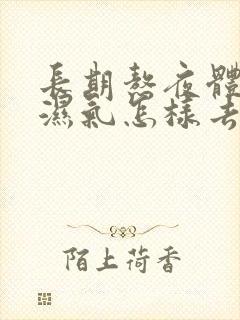 長期熬夜體
濕氣怎樣去
陌上荷香